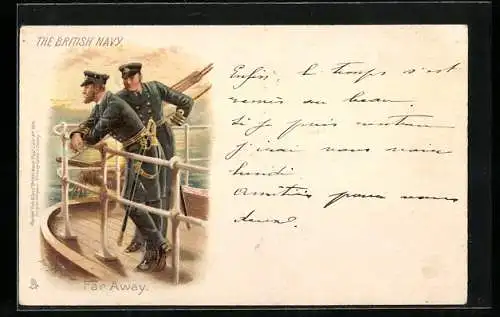 THE BRITISH NAVY.
Far Away.
Enfin, le temps s'est
remis au beau.
Si je puis
j'irai vous voir
lundi
Amitiés pour vous
deux